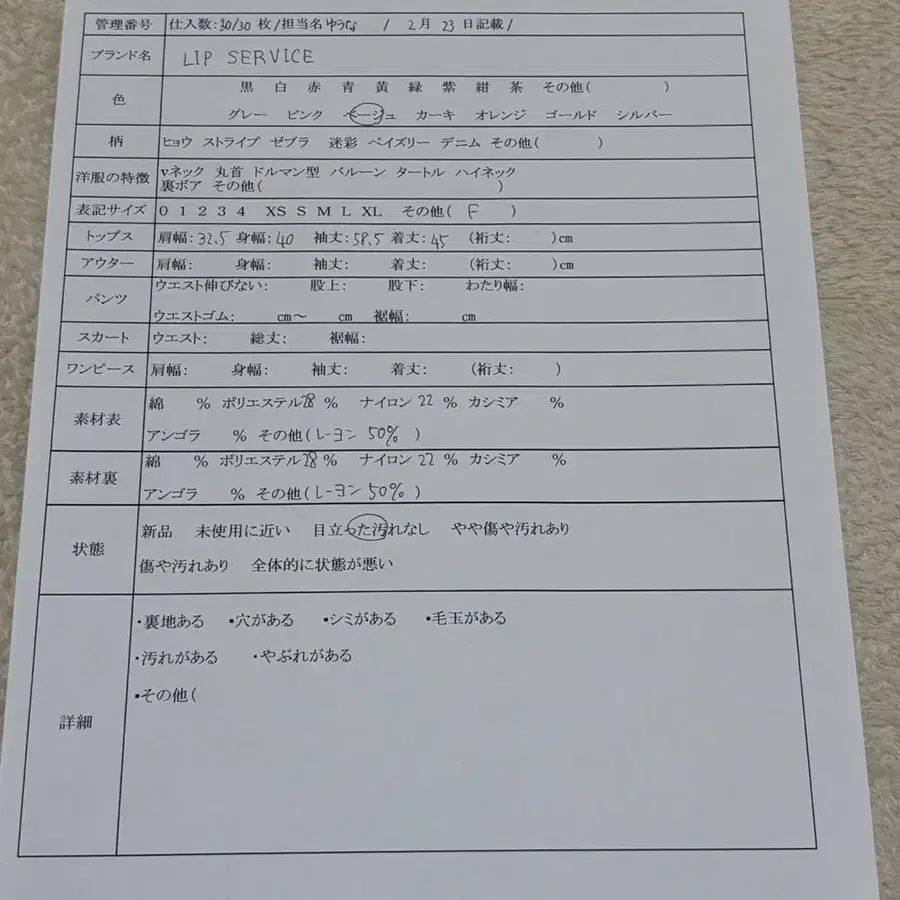 管理番号 仕入数:30/30 枚/担当名ゆうな / 2月 23日記載/
ブランド名 LIP SERVICE
色 黒 白 赤 青 黄 緑 紫 紺 茶 その他( )
グレー ピンク ベージュ カーキ オレンジ ゴールド シルバー
柄 ヒョウ ストライプ ゼブラ 迷彩 ペイズリー デニム その他( )
洋服の特徴 Vネック 丸首 ドルマン型 バルーン タートル ハイネック
裏ボア その他( )
表記サイズ 0 1 2 3 4 XS S M L XL その他( F )
トップス 肩幅:32.5 身幅:40 袖丈:58.5 着丈:45 (裄丈: )cm
アウター 肩幅: 身幅: 袖丈: 着丈: (裄丈: )cm
パンツ ウエスト伸びない: 股上: 股下: わたり幅:
ウエストゴム: cm～ cm 裾幅: cm
スカート ウエスト: 総丈: 裾幅:
ワンピース 肩幅: 身幅: 袖丈: 着丈: (裄丈: )
素材表 綿 % ポリエステル28 % ナイロン 22 % カシミア %
アンゴラ % その他(レーヨン 50% )
素材裏 綿 % ポリエステル28 % ナイロン 22 % カシミア %
アンゴラ % その他(レーヨン 50% )
状態 新品 未使用に近い 目立った汚れなし やや傷や汚れあり
傷や汚れあり 全体的に状態が悪い
詳細 ・裏地ある ・穴がある ▪シミがある ▪毛玉がある
・汚れがある ・やぶれがある
▪その他(